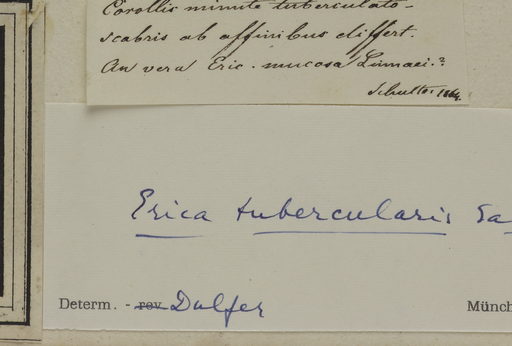 Corollis minute tuberculato-
scabris ab affinibus differt.
An vera Eric. mucosa Linnaei.?
1864.
Erica tubercularis Sa
Determ. - rev. Dulfer
Münch